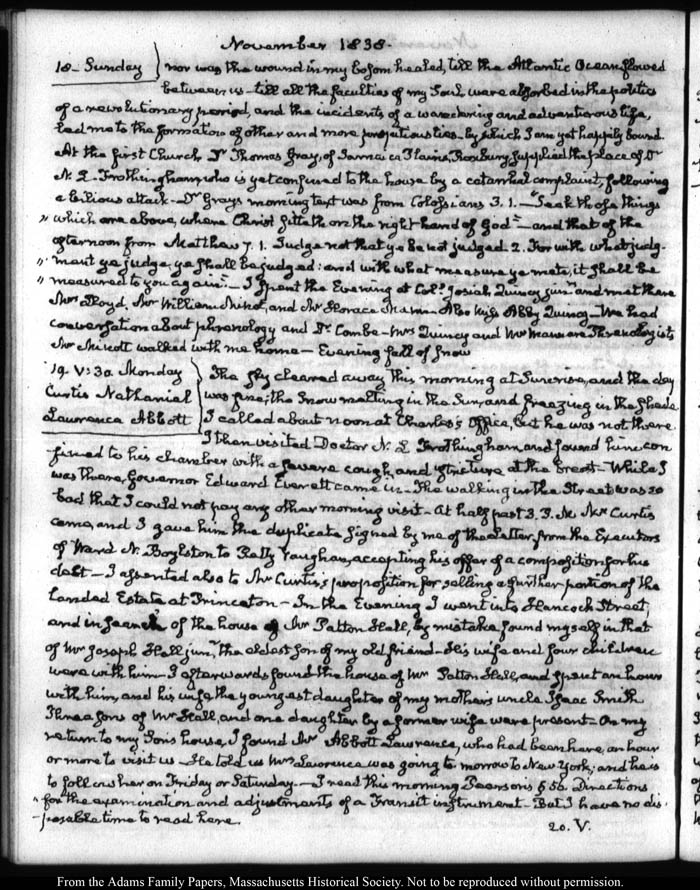 November 1838.
18. Sunday nor was the wound in my bosom healed, till the Atlantic Ocean flowed
between us - till all the faculties of my Soul were absorbed in the politics
of a revolutionary period, and the incidents of a wandering and adventurous life,
led me to the formation of other and more propitious ties by which I am yet happily bound.
At the first Church, Dr Thomas Gray, of Jamaica Plains, Roxbury supplied the place of Dr
N. L. Frothingham who is yet confined to the house by a catarrhal complaint, following
a bilious attack - Dr Grays morning text was from Colossians 3. 1. - "Seek those things
" which are above, where Christ sitteth on the right hand of God" - and that of the
afternoon from Matthew 7. 1. Judge not that ye be not judged 2. For with what judg-
" ment ye judge, ye shall be judged: and with what measure ye mete, it shall be
" measured to you again. - I spent the Evening at Col. Josiah Quincy junr and met there
Mrs Lloyd, Mr William Minot, and Mr Horace Mann. Also Miss Abby Quincy - We had
conversation about phrenology and Dr Combe - Mrs Quincy and Mr Mann are Phrenologists
Mr Minott walked with me home - Evening fall of snow
19. V: 30. Monday The sky cleared away this morning at Sunrise, and the day
Curtis Nathaniel was fine; the Snow melting in the Sun, and freezing in the Shade
Lawrence Abbott I called about noon at Charles's Office, but he was not there.
I then visited Doctor N. L. Frothingham and found him con
fined to his chamber with a severe cough, and stricture at the breast - While I
was there, Governor Edward Everett came in - The walking in the Street was so
bad that I could not pay any other morning visit - At half past 3. Mr Curtis
came, and I gave him the duplicate signed by me of the Letter, from the Executors
of Ward N. Boylston to Petty Vaughan, accepting his offer of a composition for his
debt - I assented also to Mr Curtis's proposition for selling a further portion of the
landed Estate at Princeton - In the Evening I went into Hancock Street,
and in search of the house of Mr Patton Hall, by mistake found myself in that
of Mr Joseph Hall junr, the eldest son of my old friend - His wife and four children
were with him - I afterwards found the house of Mr Patton Hall, and spent an hour
with him, and his wife the youngest daughter of my mothers uncle Isaac Smith
Three sons of Mr Hall, and one daughter by a former wife were present - On my
return to my Sons house, I found Mr Abbott Lawrence, who had been here, an hour
or more to visit us - He told us Mrs Lawrence was going to morrow to New York; and he is
to follow her on Friday or Saturday. - I read this morning Pearsons § 56. Directions
" for the examination and adjustments of a Transit instrument - But I have no dis-
-posable time to read here.
20. V.
From the Adams Family Papers, Massachusetts Historical Society. Not to be reproduced without permission.